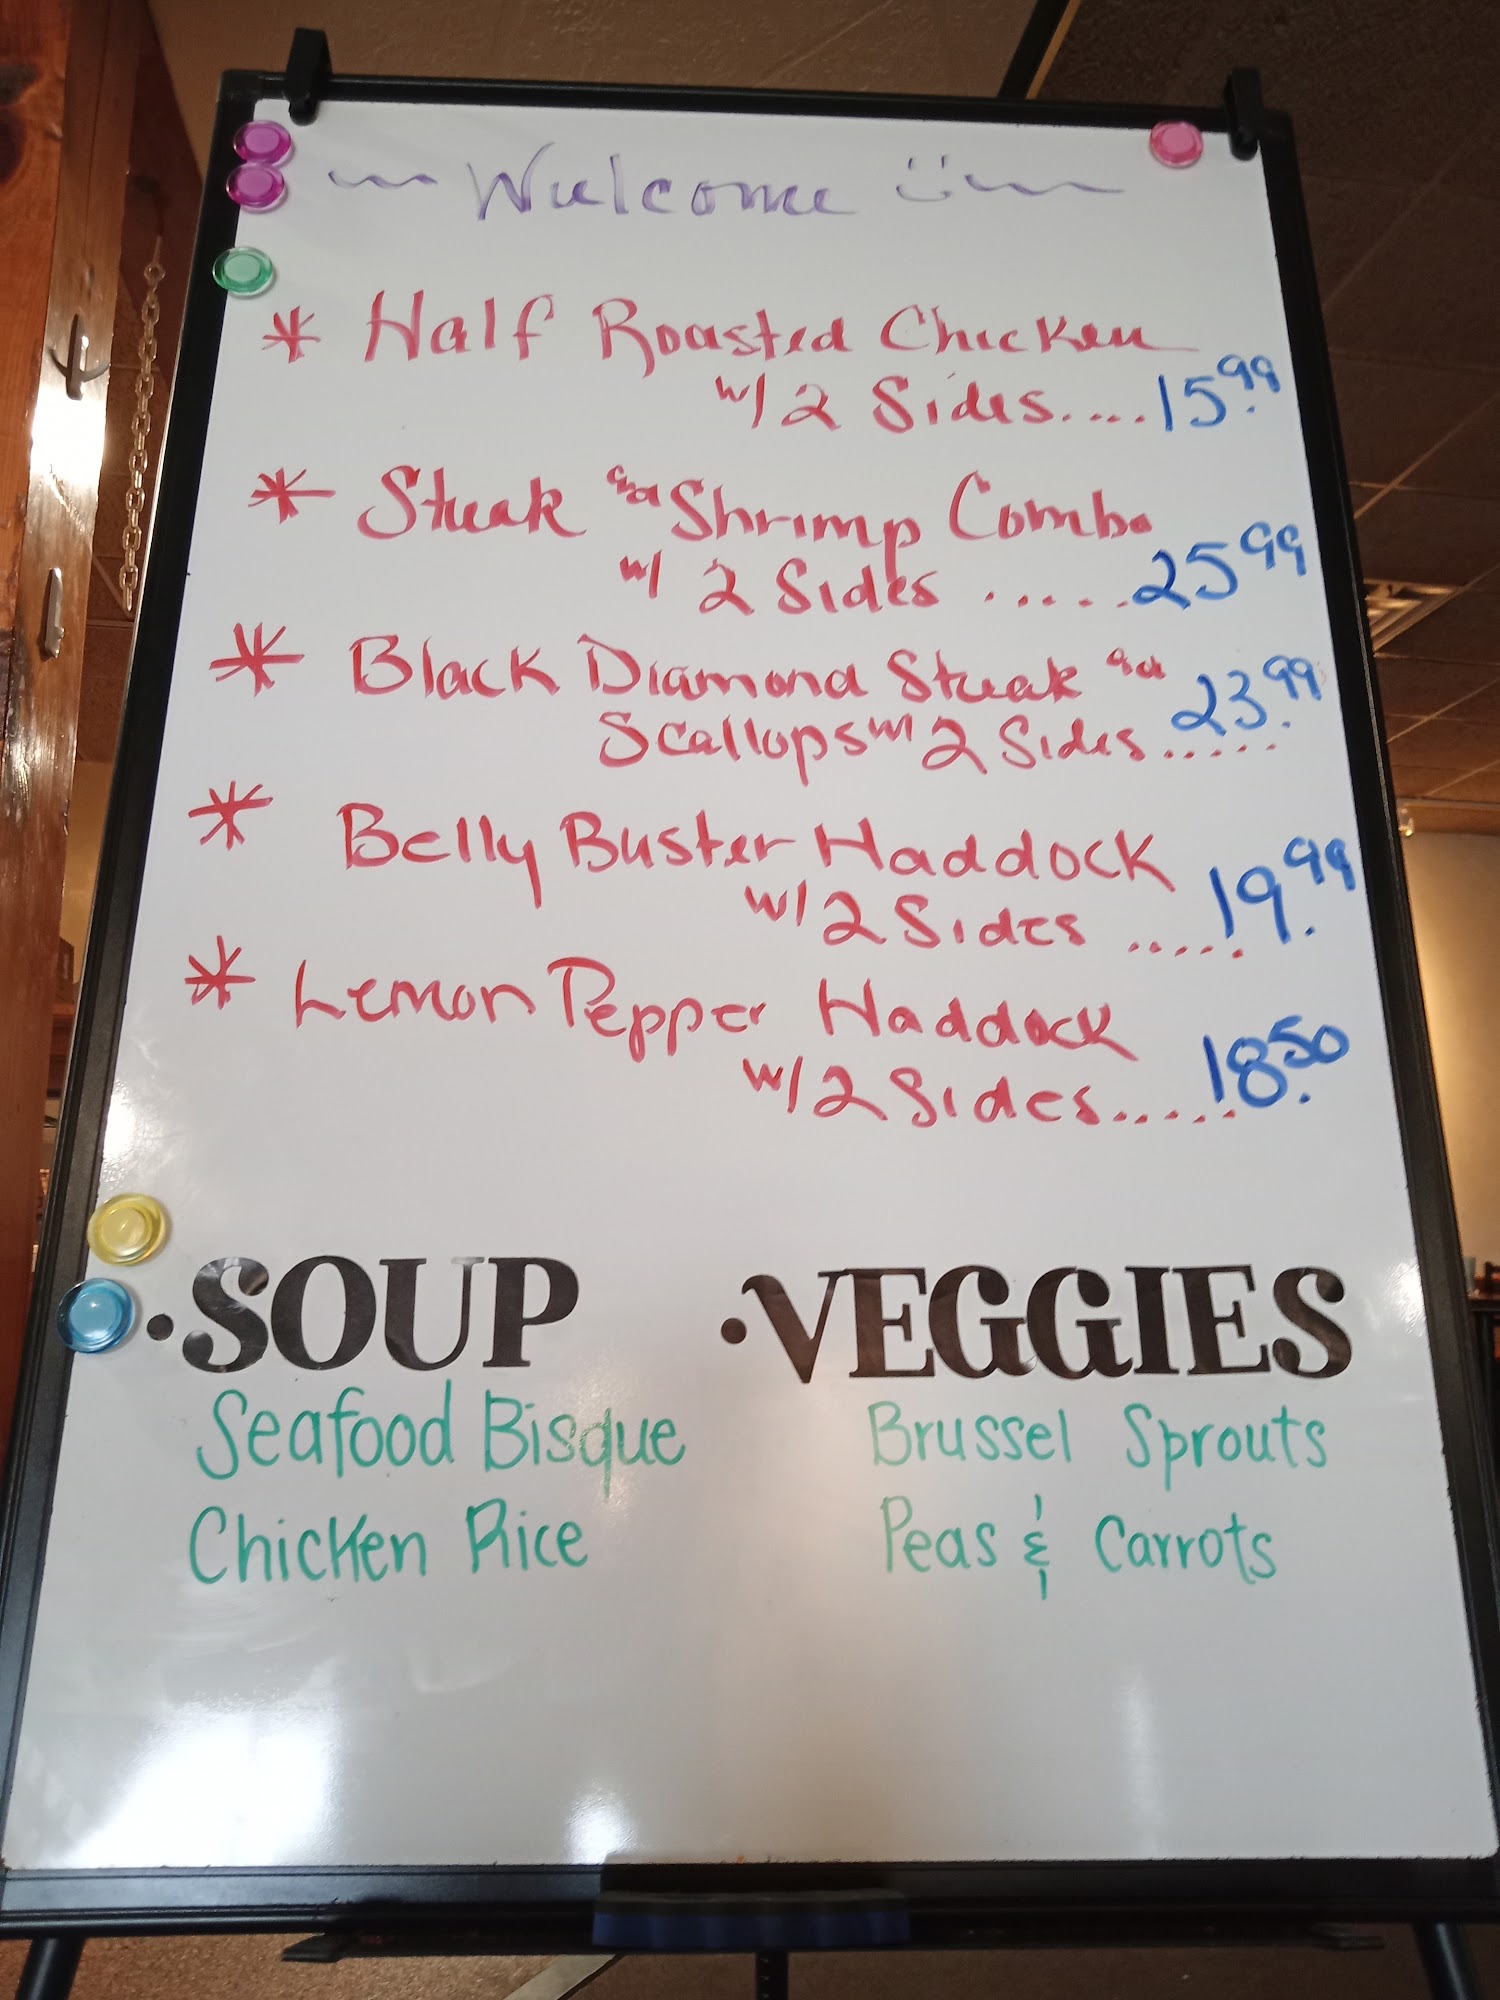 ~ Welcome ~
* Half Roasted Chicken
w/ 2 Sides....15.99
* Steak and Shrimp Combo
w/ 2 Sides .....25 99
* Black Diamond Steak and
Scallops w/ 2 Sides.....23.99
* Belly Buster Haddock
w/ 2 Sides .....19.99
* Lemon Pepper Haddock
w/ 2 Sides.....18.50
• SOUP
Seafood Bisque
Chicken Rice
• VEGGIES
Brussel Sprouts
Peas & Carrots